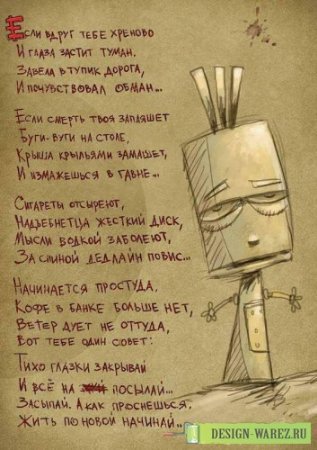 Если вдруг тебе хреново
И глаза застит туман.
Завела в тупик дорога,
И почувствовал обман...
Если смерть твоя запляшет
Буги-вуги на столе,
Крыша крыльями замашет,
И измажешься в гавне...
Сигареты отсыреют,
Надъебнетца жесткий диск,
Мысли водкой заболеют,
За спиной дедлайн повис...
Начинается простуда,
Кофе в банке больше нет,
Ветер дует не оттуда,
Вот тебе один совет:
Тихо глазки закрывай
И всё на посылай...
Засыпай. А как проснешься,
Жить по новой начинай...
DESIGN-WAREZ.RU